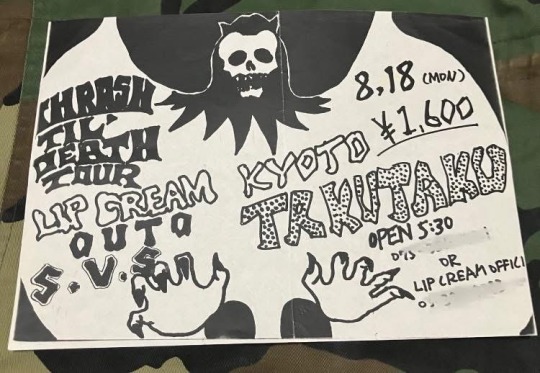 THRASH
TIL'
DEATH
TOUR
LIP CREAM
OUTO
S.V.S
8,18 (MON)
¥1,600
KYOTO
TAKUTAKU
OPEN 5:30
OR
LIP CREAM OFFICI